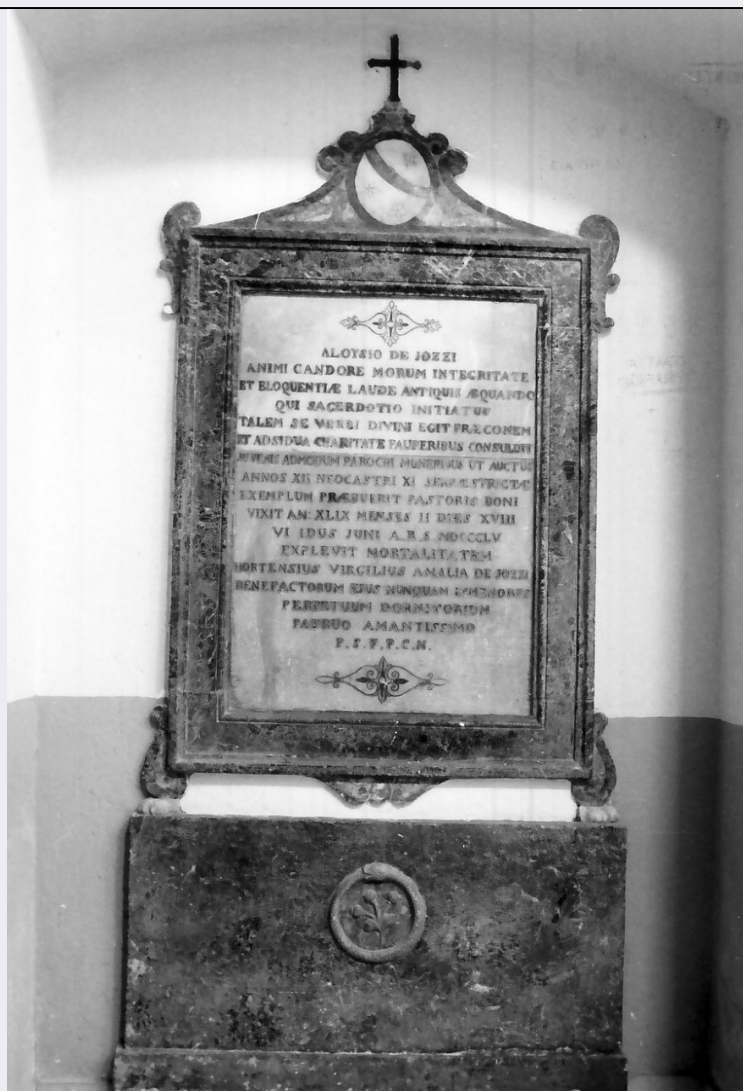 ALOYSIO DE JOZZI
ANIMI CANDORE MORUM INTEGRITATE
ET ELOQUENTIÆ LAUDE ANTIQUIS ÆQUANDO
QUI SACERDOTIO INITIATUS
TALEM SE VERBI DIVINI EGIT PRÆCONEM
ET ADSIDUA CHARITATE PAUPERIBUS CONSULUIT
ADMODUM PAROCHI MUNERIBUS UT AUCTUS
ANNOS XII NEOCASTRI XI
EXEMPLUM PRÆBUERIT PASTORIS BONI
VIXIT AN: XLIX MENSES II DIES XVIII
VI IDUS JUNI A.R.S. MDCCCLV
EXPLEVIT MORTALITATEM
HORTENSIUS VIRGILIUS AMALIA DE JOZZI
BENEFACTORUM EJUS NUNQUAM IMMEMORES
PERPETUUM DORMITORIUM
PATRUO AMANTISSIMO
P.S.F.P.C.N.